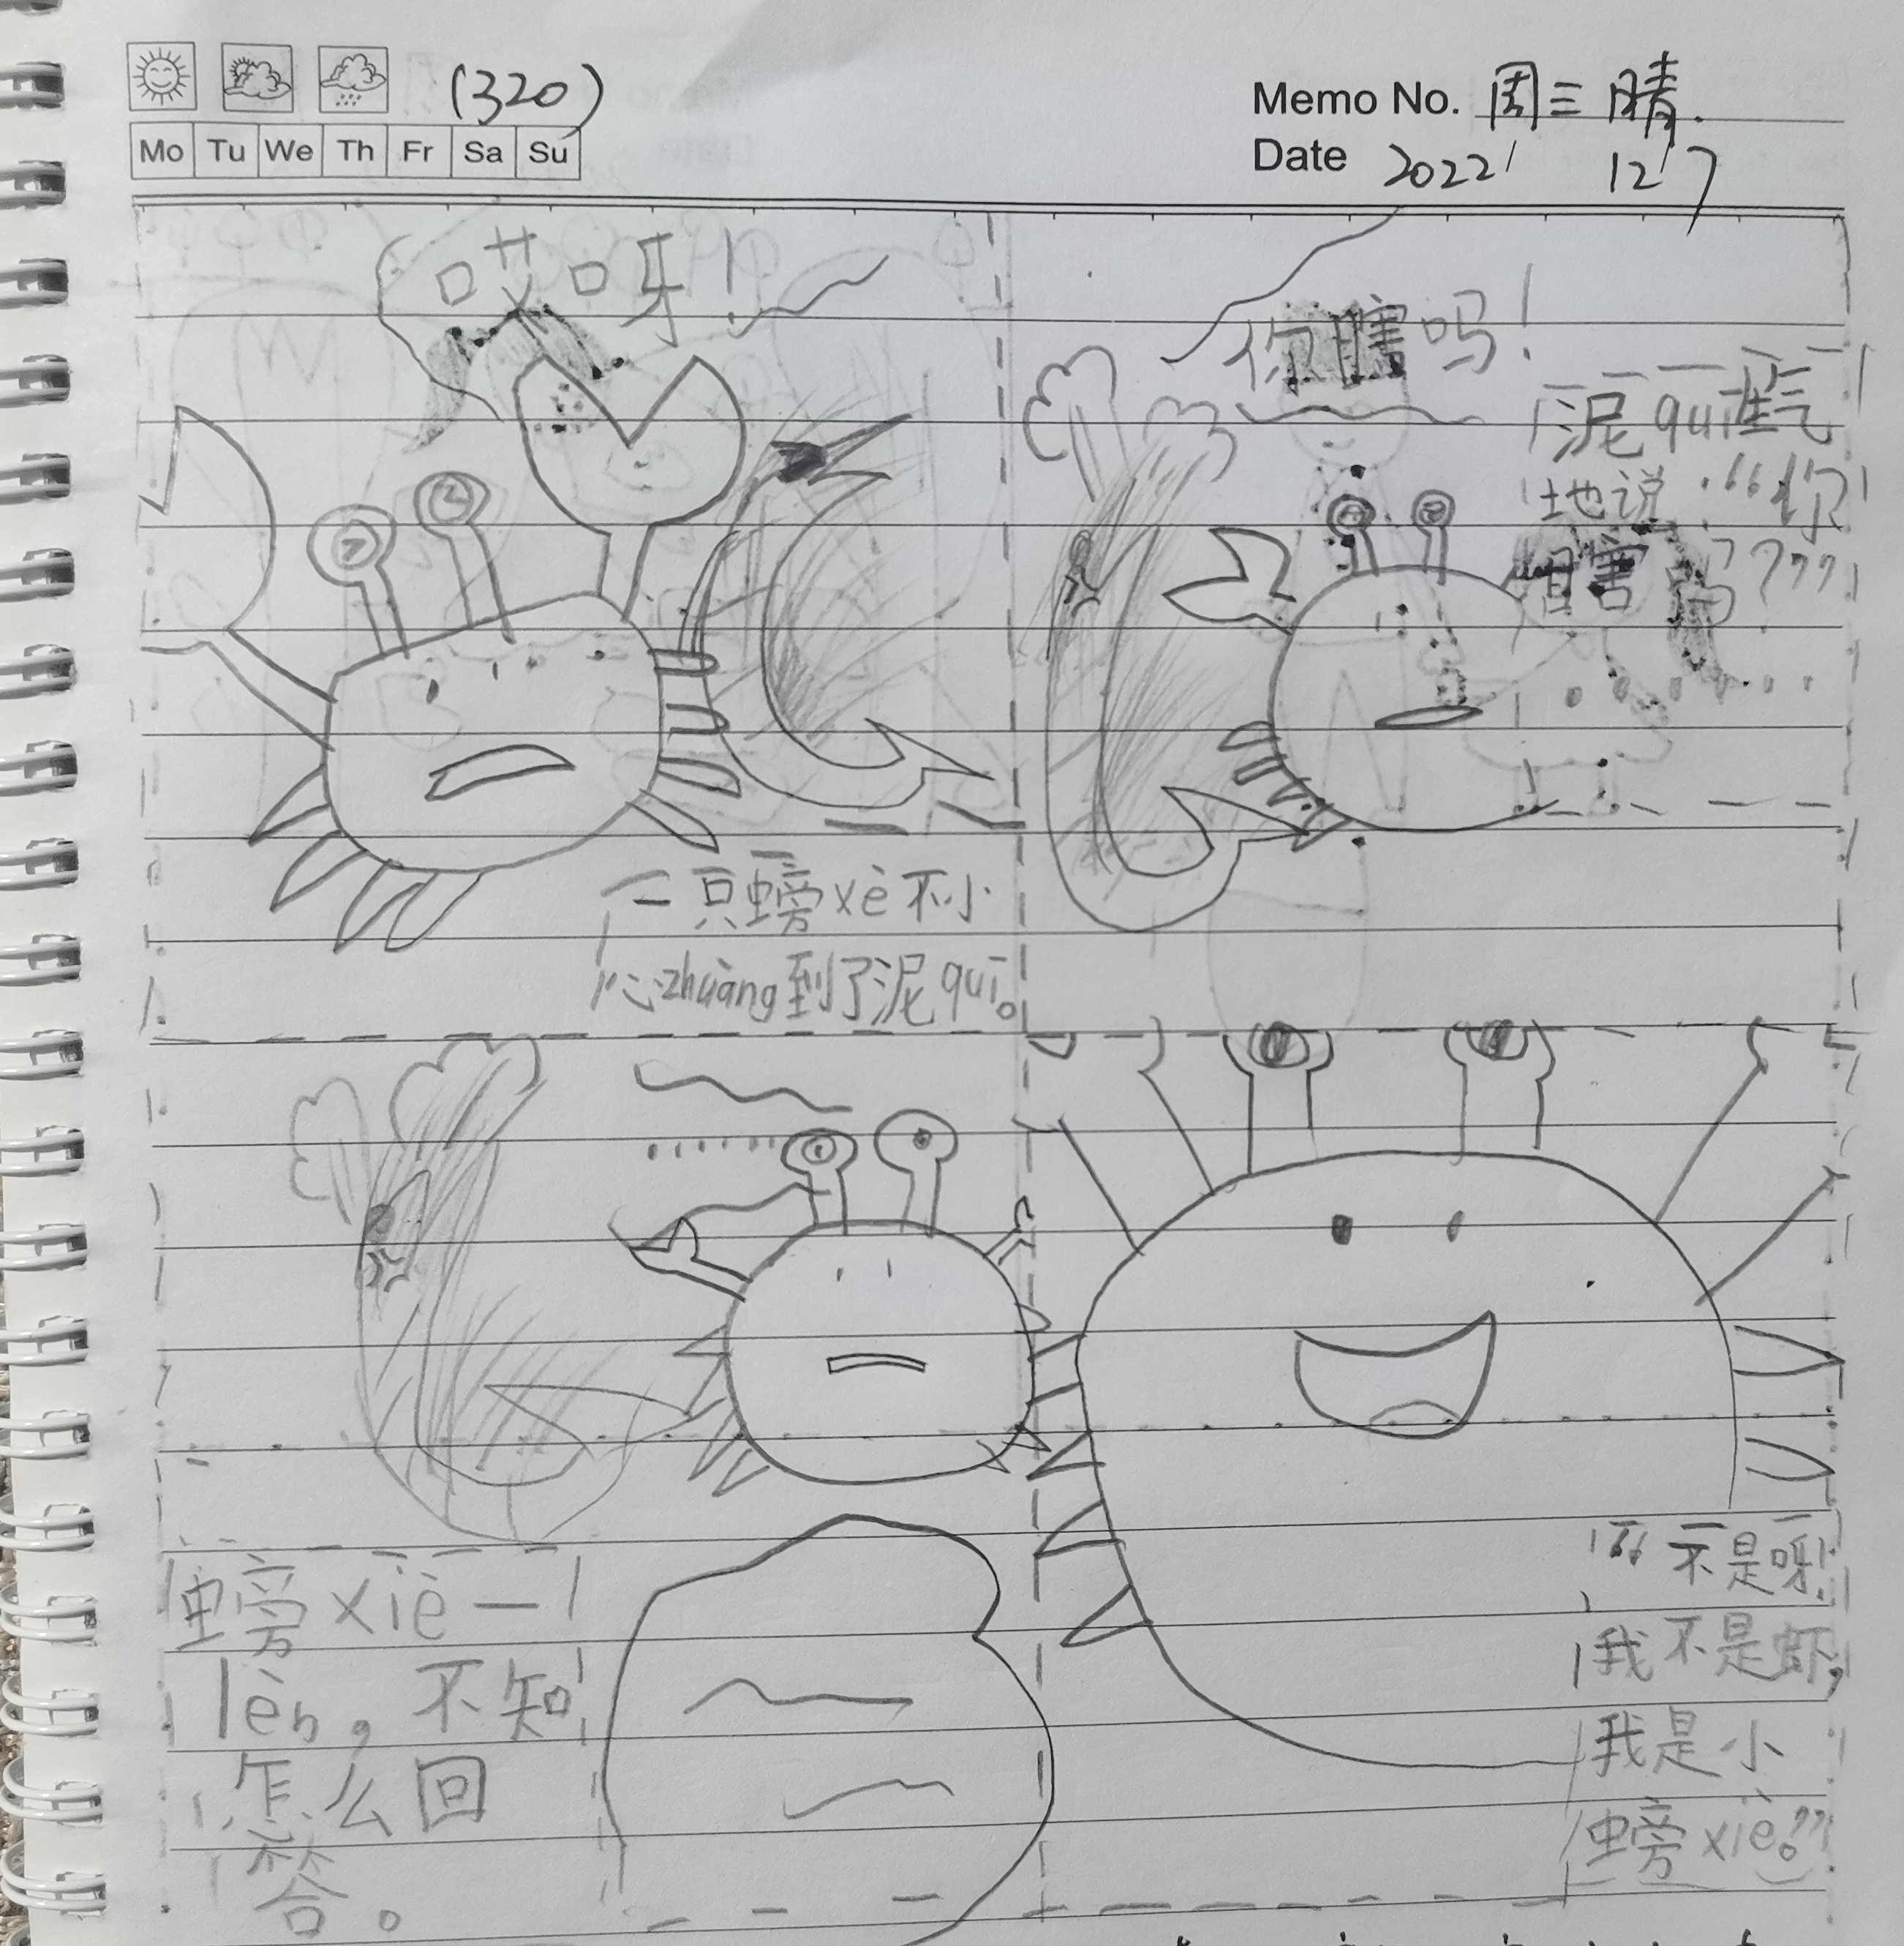 (320)
Memo No. 周三 晴.
Mo Tu We Th Fr Sa Su
Date 2022/ 12/7
哎呀！
一只螃xè不小
心zhuàng到了泥quī。
你瞎吗！
泥quī生气
地说：“你
瞎吗？”
螃xiè一
lèn，不知
怎么回
答。
“不是呀！
我不是虾，
我是小
螃xiè。”